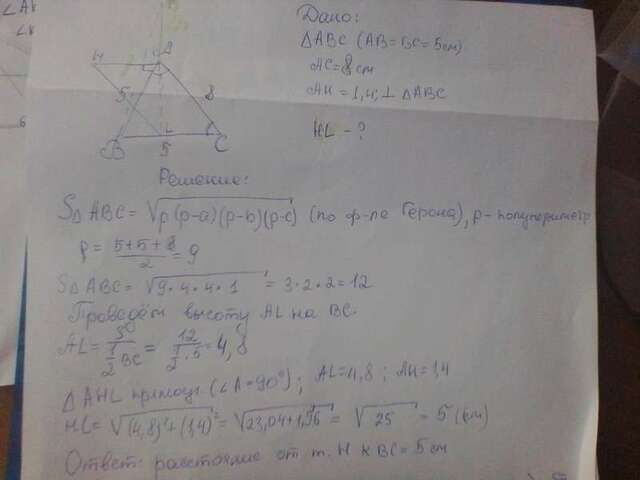 ∠AK
∠K
Дано:
△ABC (AB=BC=5см)
AC=8см
AH=1,4; ⊥ △ABC
HL - ?
H A
5 8
B L C
5
6
Решение:
S△ABC= √p(p-a)(p-b)(p-c) (по ф-ле Герона), p- полупериметр
P= 5+5+8/2 = 9
S△ABC= √9·4·4·1 = 3·2·2=12
Проведём высоту AL на BC.
AL= S/½BC = 12/½·5 = 4,8
△AHL прямоуг. (∠A=90°); AL=4,8; AH=1,4
HL= √(4,8)²+(1,4)² = √23,04+1,96 = √25 = 5(см)
Ответ: расстояние от т. H к BC=5 см